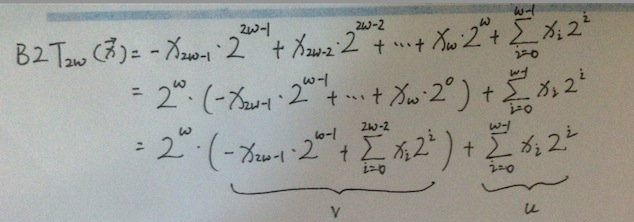 B2T₂w(x⃗) = -x₂w₋₁·2^(2w-1) + x₂w₋₂·2^(2w-2) + ⋯ + xw·2^w + ∑_(i=0)^(w-1) xᵢ2^i
= 2^w·(-x₂w₋₁·2^(w-1) + ⋯ + xw·2^0) + ∑_(i=0)^(w-1) xᵢ2^i
= 2^w·(-x₂w₋₁·2^(w-1) + ∑_(i=0)^(2w-2) xᵢ2^i) + ∑_(i=0)^(w-1) xᵢ2^i
v u